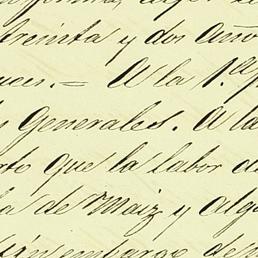 treinta y dos año
ces.= A la 1.ª p
Generales. A la
que la labor d
de Maiz y alg
embargo de